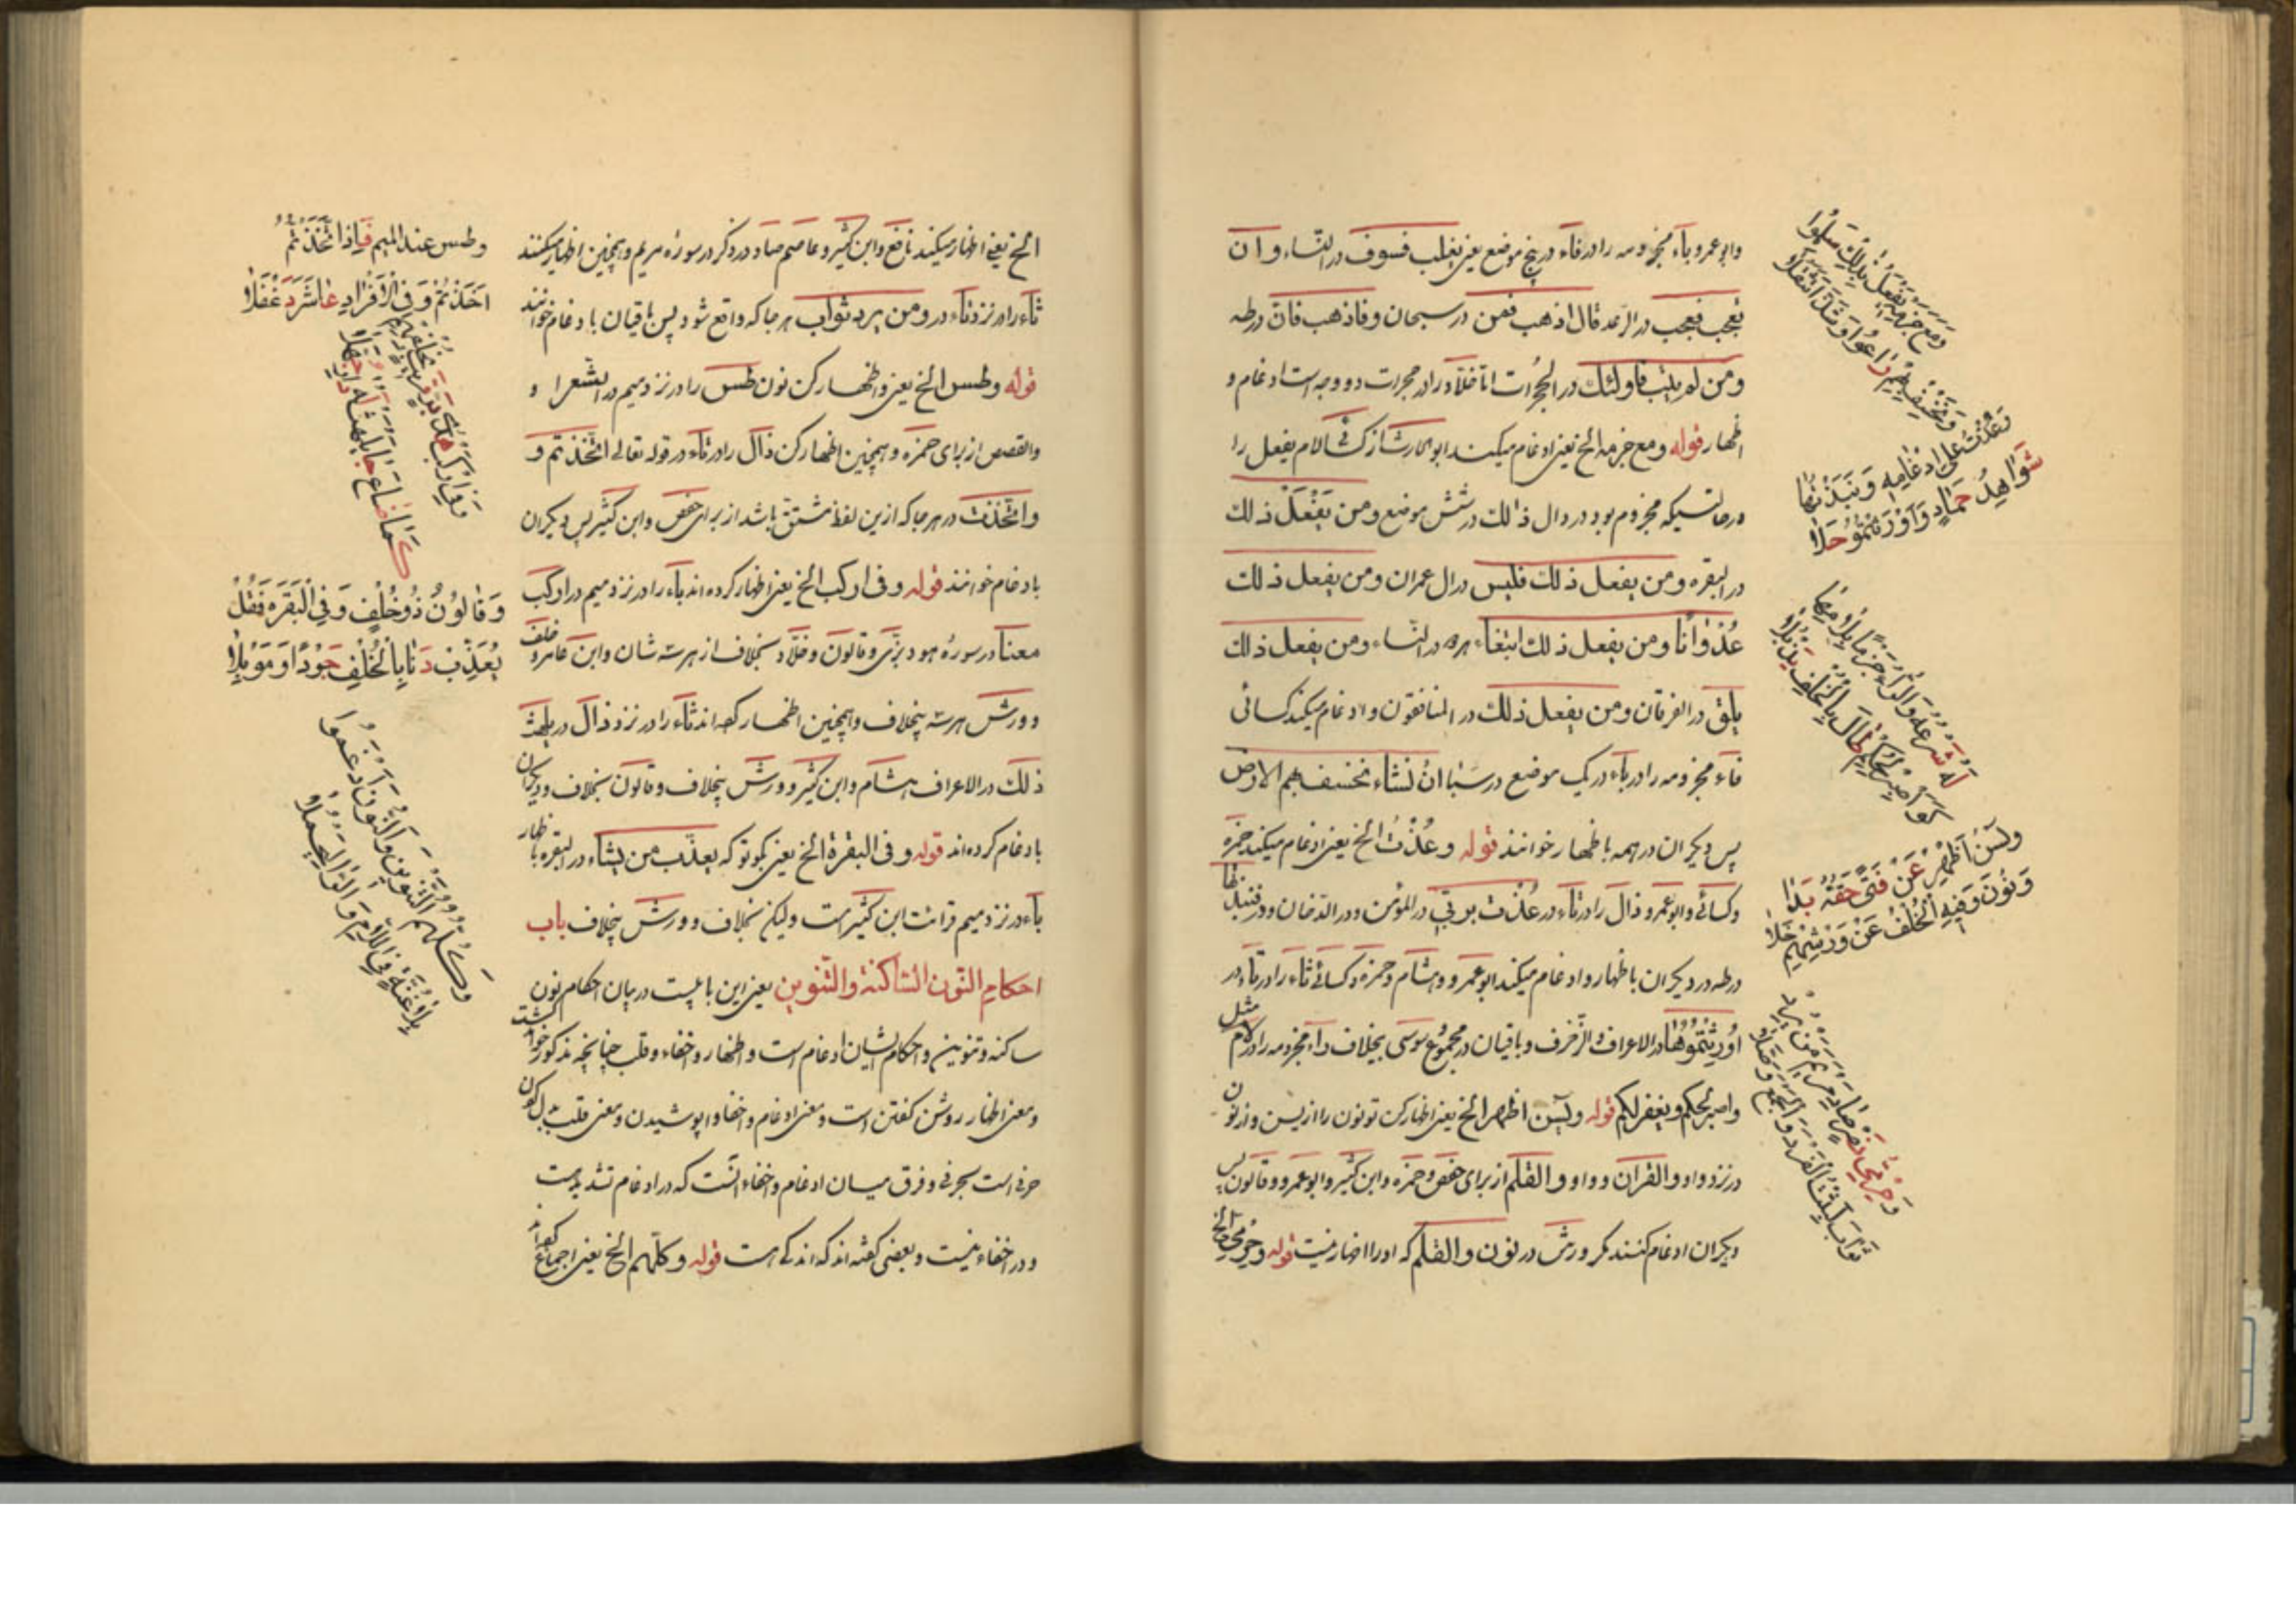 وابو عمرو باء مجزومه را در فاء در پنج موضع یعنی یغلب فسوف در النساء و ان
تعجب فعجب در الرعد قال اذهب فمن در سبحان و فاذهب فان در طه
ومن لم یتب فاولئك در الحجرات اما خلاد را در حجرات دو وجه است ادغام و
اظهار قوله ومع جزمه الخ یعنی ادغام میکند ابو الحارث از کسائی لام یفعل را
در حالتیکه مجزوم بود در ذال ذلك در شش موضع ومن یَفْعَلْ ذلك
در البقره ومن یفعل ذلك فلیس در ال عمران ومن یفعل ذلك
عُدْوَاناً ومن یفعل ذلك ابتغاء هر دو در النساء ومن یفعل ذلك
یلق در الفرقان ومن یفعل ذلك در المنافقون و ادغام میکند کسائی
فاء مجزومه را در باء در یک موضع در سبا ان نشاء نخسف بهم الارض
پس دیگران در همه باظهار خوانند قوله وعُذْتُ الخ یعنی ادغام میکند حمزه
وکسائی وابو عمرو ذال را در تاء در عُذْت بربی در المؤمن و در الدخان و در فنبذتها
در طه و دیگران باظهار و ادغام میکند ابو عمرو و هشام و حمزه و کسائی ثاء را در تاء در
اُورِثْتُمُوهَا در الاعراف والزخرف و باقیان در مجموع سوسی بخلاف راء مجزومه را در لام مثل
واصبر لحکم ویغفر لکم قوله ویٰسٓ اظهر الخ یعنی اظهار کن تو نون را از یس و از نون
در نزد واو والقرآن و واو والقلم از برای حفص و حمزه وابن کثیر وابو عمرو و قالون پس
دیگران ادغام کنند مگر ورش در نون والقلم که او را اخبار نیست قوله وحرمی الخ
وَمَعْ جَزْمِهِ یَفْعَلْ بِذٰلِكَ سَلَّمُوا
وَنَخْسِفْ بِهِمْ رَاعَوْا وَشَذَّا تَثَقُّلَا
وَعُذْتُ عَلَی اِدْغَامِهِ وَنَبَذْتُهَا
شَوَاهِدُ حَمَّادٍ وَاُوْرِثْتُمُوا حَلَا
لَهُ شَرْعُهُ وَالرَّاءُ جَزْمًا بِلَامِهَا
کَوَاصْبِرْ لِحُکْمِ طَالَ بِالْخُلْفِ یَذْبُلَا
وَیٰسٓ اَظْهِرْ عَنْ فَتًی حَقُّهُ بَدَا
وَنُونَ وَفِیهِ الْخُلْفُ عَنْ وَرْشِهِمْ خَلَا
وَحِرْمِیُّ نَصْرٍ صَادَ مَرْیَمَ مَنْ یُرِدْ
ثَوَابَ لَبِثْتَ الْفَرْدَ وَالْجَمْعَ وَصَّلَا
الخ یعنی اظهار میکنند نافع وابن کثیر و عاصم صاد در ذکر در سوره مریم و همچنین اظهار میکنند
ثاء را در نزد تاء در ومن یرد ثواب هر جا که واقع شود پس باقیان بادغام خوانند
قوله وطس الخ یعنی واظهار کن نون طس را در نزد میم در الشعرا و
والقصص از برای حمزه و همچنین اظهار کن ذال را در تاء در قوله تعالی اتخذتم و
واتخذت در هر جا که ازین لفظ مشتق باشد از برای حفص وابن کثیر پس دیگران
بادغام خوانند قوله وفی ارکب الخ یعنی اظهار کرده اند باء را در نزد میم در ارکب
معنا در سوره هود بزی و قالون و خلاد بخلاف از هر سه شان وابن عامر و خلف
و ورش هر سه بیخلاف و همچنین اظهار کرده اند ثاء را در نزد ذال در یلهث
ذلك در الاعراف هشام وابن کثیر و ورش بیخلاف و قالون بخلاف و دیگران
بادغام کرده اند قوله وفی البقرة الخ یعنی بگو تو که یعذب من یشاء در البقره باظهار
باء در نزد میم قرائت ابن کثیرست ولیکن بخلاف و ورش بیخلاف باب
احکام النون الساکنة والتنوین یعنی این بابیست در بیان احکام نون
ساکنه و تنوین و احکام ایشان ادغام است و اظهار و اخفاء و قلب چنانچه مذکور خواهد گشت
ومعنی اظهار روشن گفتن است و معنی ادغام و اخفا واپوشیدن و معنی قلب بدل کردن
حرفی است بحرفی و فرق میان ادغام و اخفاء آنست که در ادغام تشدیدست
و در اخفاء نیست و بعضی گفته اند که اندکی هست قوله وکلهم الخ یعنی اجماع کرده اند
وطس عند المیم فَازَ اتَّخَذْتُمُ
اَخَذْتُمْ وَفِی الْاِفْرَادِ عَاشَرَ دَغْفَلَا
وَفِی ارْکَبْ هُدَی بَرٍّ قَرِیبٍ بِخُلْفِهِمْ
کَمَا ضَاعَ جَا یَلْهَثْ لَهُ دَارِ جُهَّلَا
وَقَالُونُ ذُو خُلْفٍ وَفِی الْبَقَرَهْ فَقُلْ
یُعَذِّبْ دَنَا بِالْخُلْفِ جَوْدًا وَمُوبِلَا
وَکُلُّهُمُ التَّنْوِینَ وَالنُّونَ اَدْغَمُوا
بِلَا غُنَّةٍ فِی اللَّامِ وَالرَّا لِیَجْمُلَا